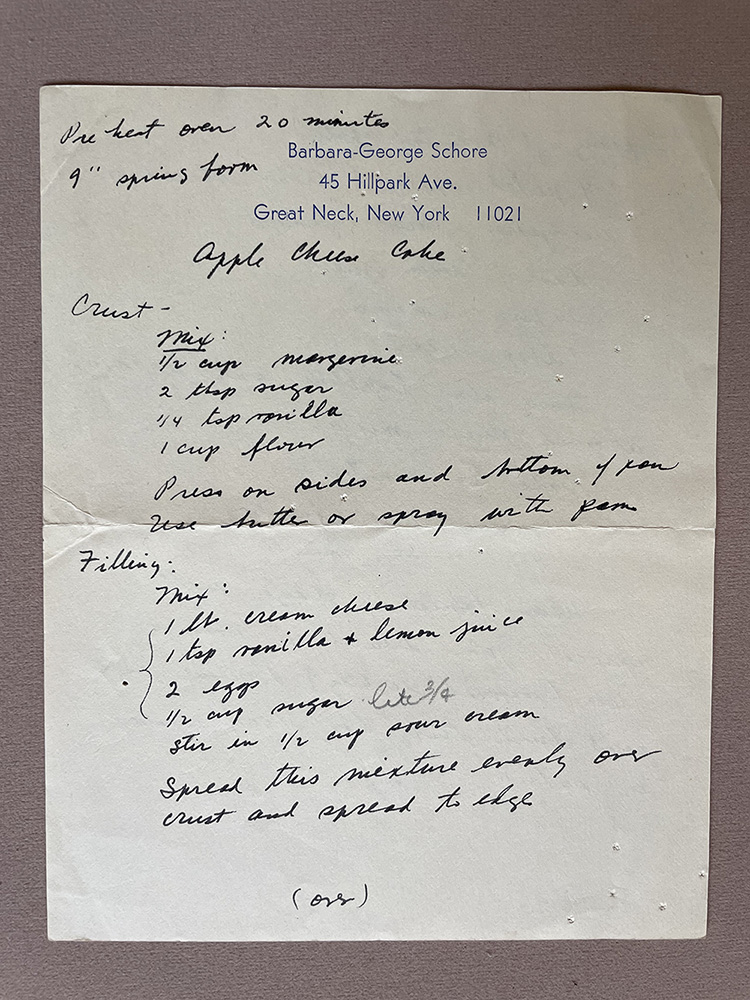 Pre heat oven 20 minutes
9" spring form
Barbara-George Schore
45 Hillpark Ave.
Great Neck, New York 11021
Apple Cheese Cake
Crust -
Mix:
1/2 cup margerine
2 tbsp sugar
1/4 tsp vanilla
1 cup flour
Press on sides and bottom of pan
Use butter or spray with pam
Filling:
Mix:
1 lb. cream cheese
1 tsp vanilla + lemon juice
2 eggs
1/2 cup sugar lite 3/4
stir in 1/2 cup sour cream
Spread this mixture evenly over
crust and spread to edge
(over)